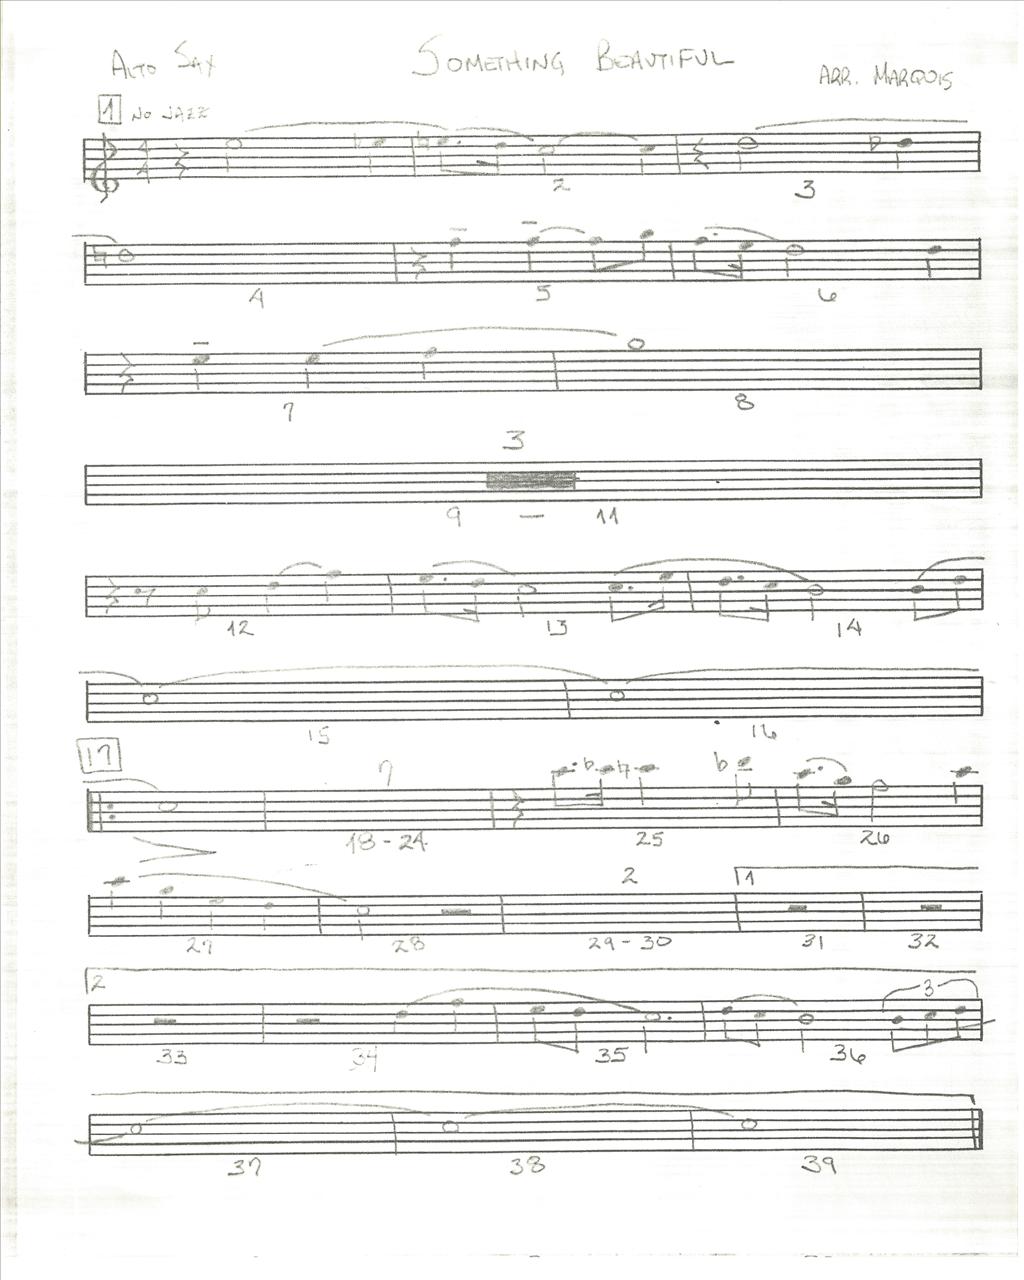 ALTO SAX
SOMETHING BEAUTIFUL
ARR. MARQUIS
1 NO JAZZ
4
4
2 3
4 5 6
7 8
3
9 - 11
12 13 14
15 16
17
7
18-24 25 26
2 1
27 28 29-30 31 32
2
3
33 34 35 36
37 38 39